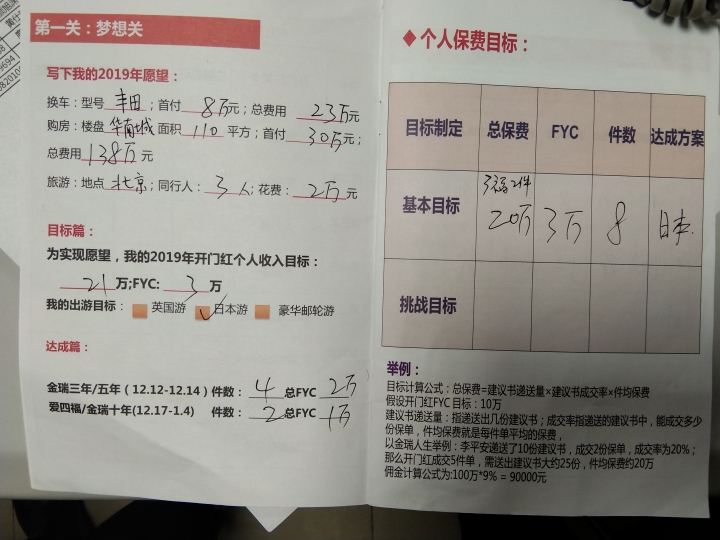 第一关：梦想关
写下我的2019年愿望：
换车：型号 丰田；首付 8万元；总费用 23万元
购房：楼盘 华南城 面积 110 平方；首付 30万元；
总费用 138万 元
旅游：地点 北京；同行人：3人；花费：2万元
目标篇：
为实现愿望，我的2019年开门红个人收入目标：
21 万;FYC: 3 万
我的出游目标： 英国游 日本游 豪华邮轮游
达成篇：
金瑞三年/五年（12.12-12.14）件数： 4 总FYC 2万
爱四福/金瑞十年(12.17-1.4) 件数： 2 总FYC 1万
◆ 个人保费目标：
目标制定 总保费 FYC 件数 达成方案
2件
基本目标 20万 3万 8 日本.
挑战目标
举例：
目标计算公式：总保费=建议书递送量×建议书成交率×件均保费
假设开门红FYC 目标：10万
建议书递送量：指递送出几份建议书；成交率指递送的建议书中，能成交多少
份保单，件均保费就是每件单平均的保费，
以金瑞人生举例：李平安递送了10份建议书，成交2份保单，成交率为20%；
那么开门红成交5件单，需送出建议书大约25份，件均保费约20万
佣金计算公式为:100万*9% = 90000元